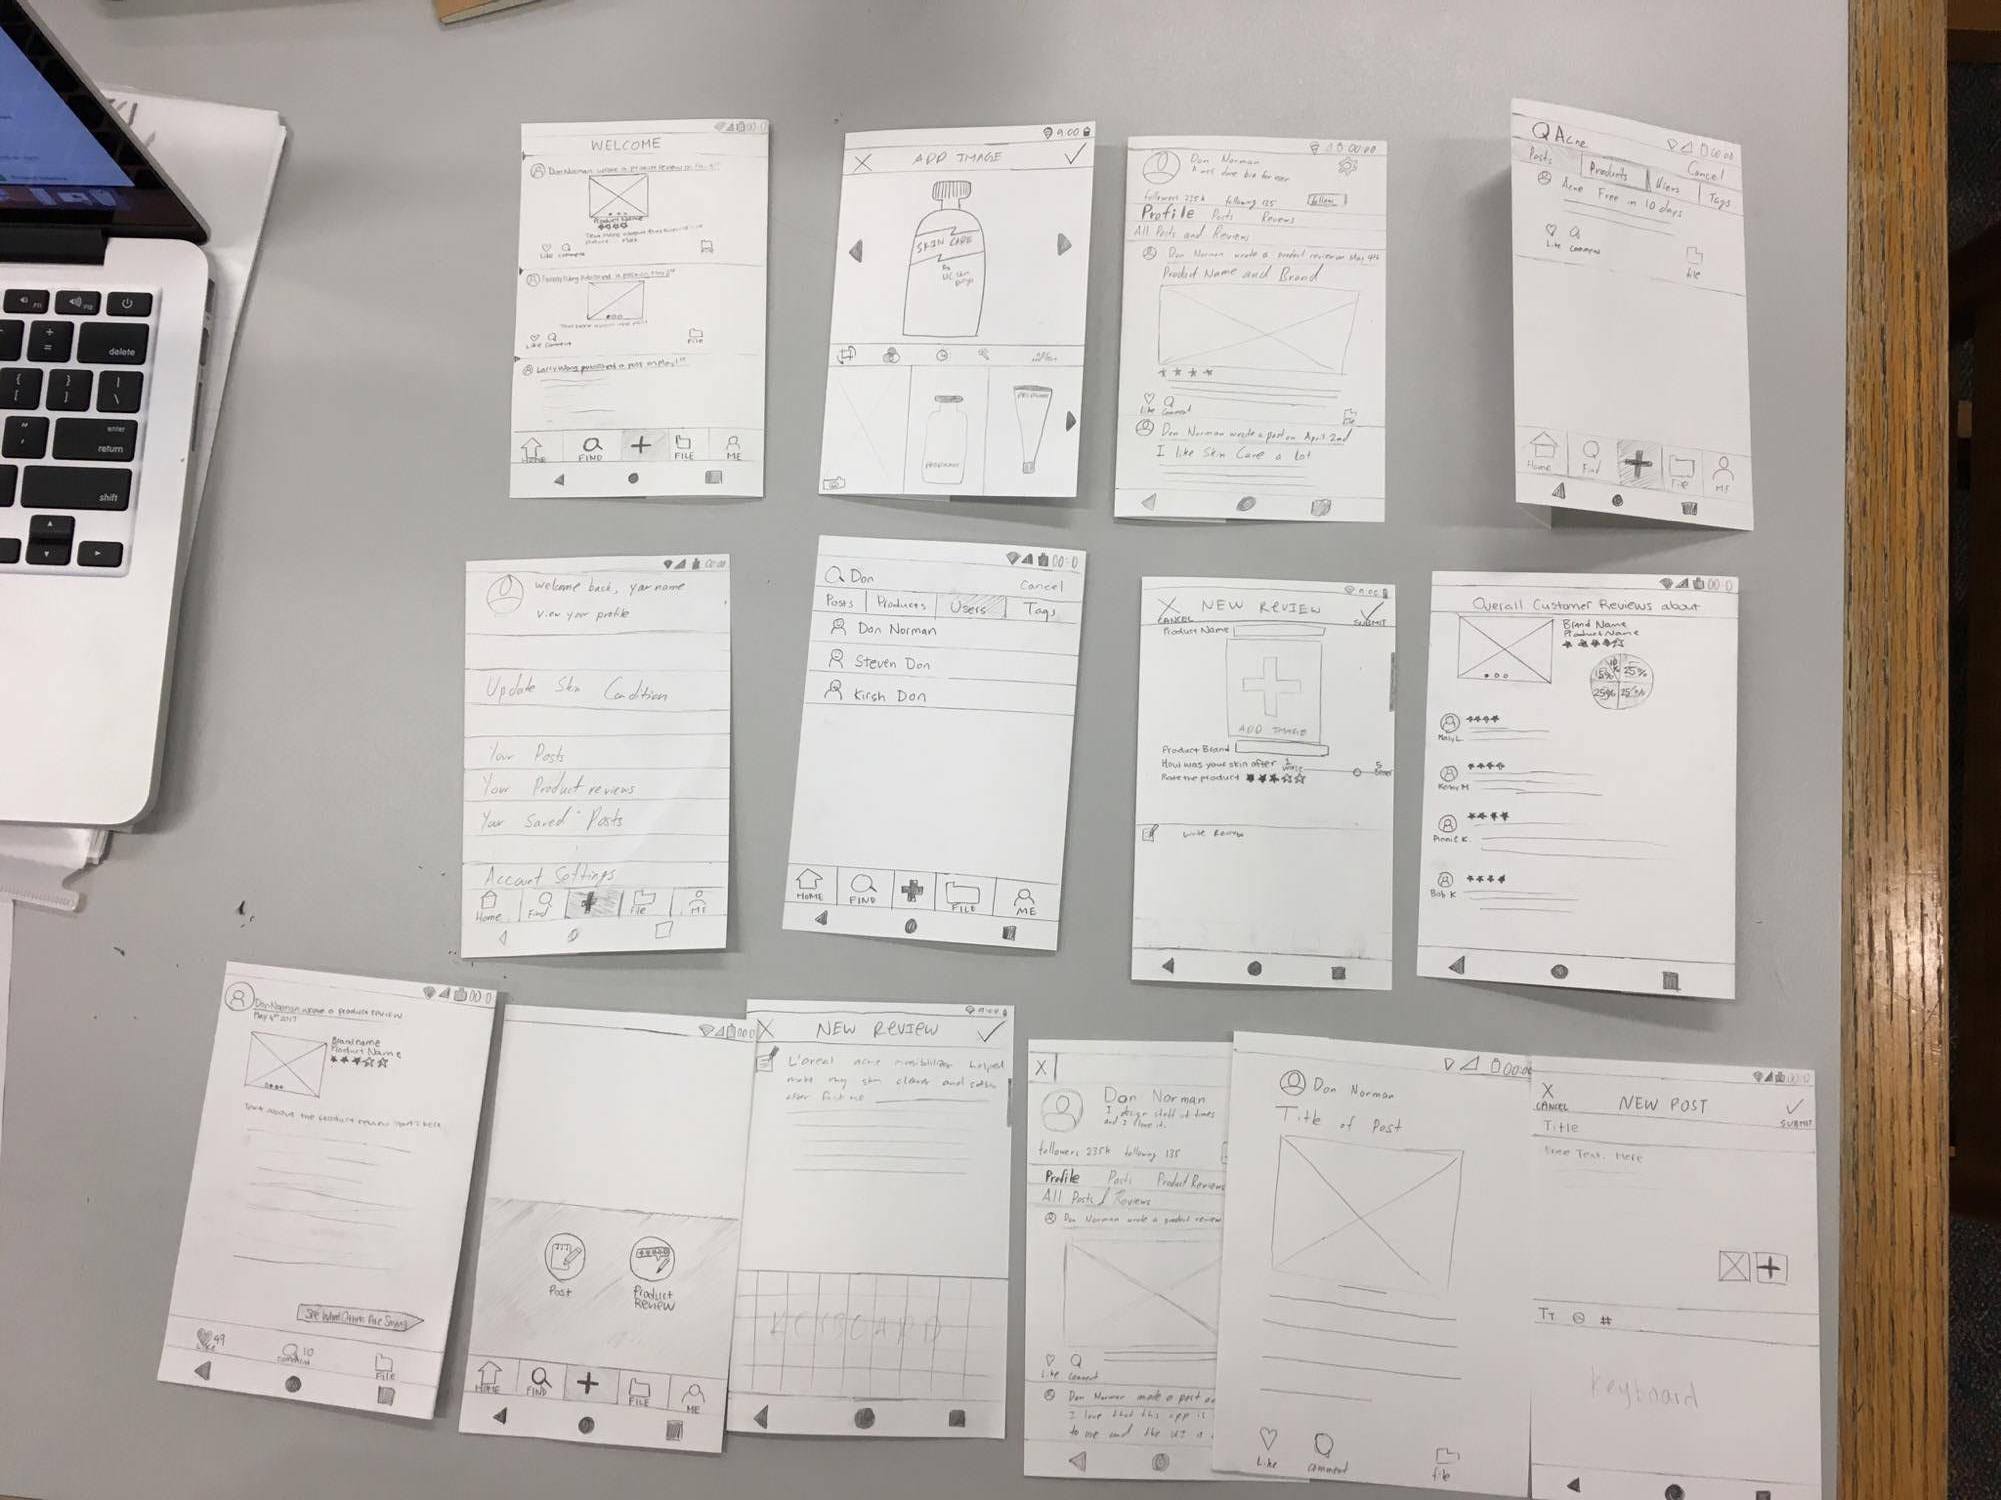 WELCOME
Don Norman wrote a product review on
Product Name
Like comment
Like comment
File
Larry Wong published a post on May 1st
HOME
FIND
FILE
ME
9:00
ADD IMAGE
SKIN CARE
00:00
Don Norman
followers 235k following 135
follow
Profile Posts Reviews
All Posts and Reviews
Don Norman wrote a product review on May 4th
Product Name and Brand
Like comment
file
Don Norman wrote a post on April 2nd
I like Skin Care a lot
Acne
00:00
Cancel
Posts
Products
Users
Tags
Acne Free in 10 days
Like comment
file
Home
Find
File
ME
00:00
welcome back, your name
view your profile
Update Skin Condition
Your Posts
Your Product reviews
Your Saved Posts
Account Settings
Home
Find
File
ME
00:0
Don
Cancel
Posts
Products
Users
Tags
Don Norman
Steven Don
Kirsh Don
HOME
FIND
FILE
ME
9:00
NEW REVIEW
CANCEL
SUBMIT
Product Name
ADD IMAGE
Product Brand
How was your skin after 1
5
Rate the product
write Review
00:0
Overall Customer Reviews about
Brand Name
Product Name
15%
10%
25%
25%
25%
Mary L.
Kenny M
Annie K.
Bob K
00:0
Don Norman wrote a product review
May 4th 2017
Brand name
Product Name
Text about the product review starts here
See What Others Are Saying
49
Like
10
comment
File
Post
Product Review
HOME
FIND
FILE
ME
9:00
NEW REVIEW
L'oreal acne invisibilizer helped
make my skin clearer and
after
KEYBOARD
X
Don Norman
I design stuff at times
and I love it.
followers 235k following 135
Profile Posts Product Reviews
All Posts / Reviews
Don Norman wrote a product review
Like comment
Don Norman made a post on
I love that this app is
to me and the UI is
00:00
Don Norman
Title of Post
Like
comment
file
00:0
CANCEL
NEW POST
SUBMIT
Title
Free Text Here
TT #
Keyboard
delete
enter
return
shift